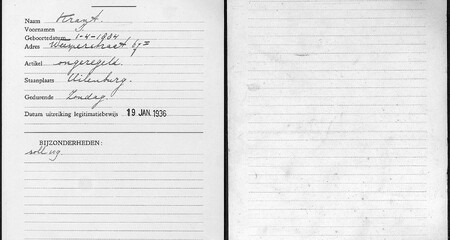 Naam Krayt.
Voornamen J.
Geboortedatum 1-4-1904
Adres Weesperstraat 67 II
Artikel ongeregeld.
Staanplaats Uilenburg.
Gedurende Zondag.
Datum uitreiking legitimatiebewijs 19 JAN. 1936
BIJZONDERHEDEN: